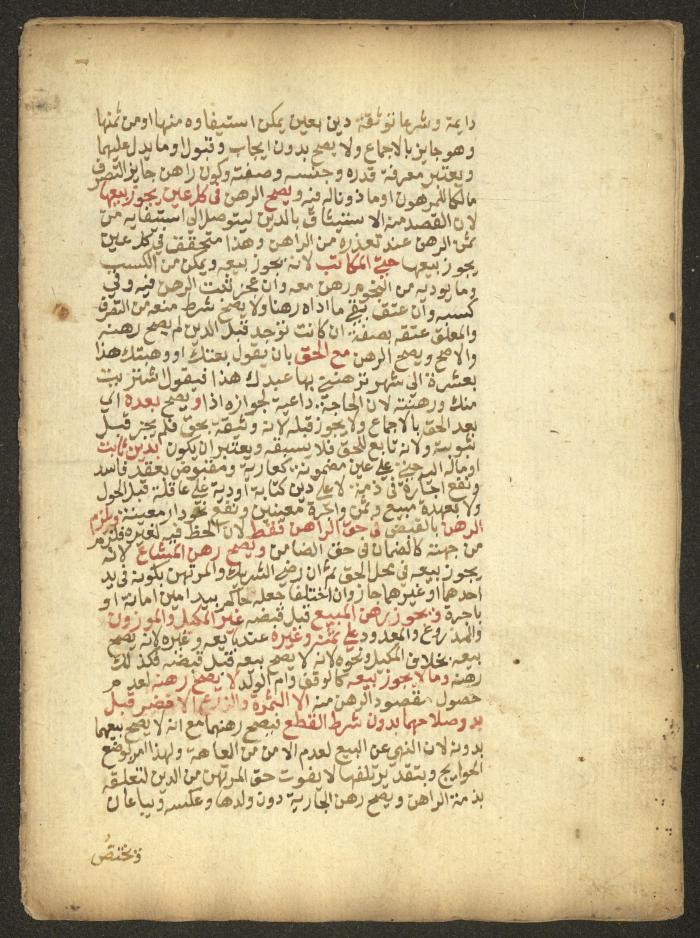 دايمة وشرعا توثقة دين بعين يمكن استيفاوه منها او من ثمنها
وهو جايز بالاجماع ولا يصح بدون ايجاب وقبول وما يدل عليهما
ويعتبر معرفة قدره وجنسه وصفته وكون راهن جايز التصرف
مالكا للمرهون او ماذونا له فيه ويصح الرهن في كل عين يجوز بيعها
لان القصد منه الاستيثاق بالدين ليتوصل الى استيفايه من
ثمن الرهن عند تعذره من الراهن وهذا متحقق في كل عين
يجوز بيعها حتى المكاتب لانه يجوز بيعه ويمكن من الكسب
وما يوديه من النجوم رهن معه وان عجز ثبت الرهن فيه وفي
كسبه وان عتق بقي ما اداه رهنا ولا يصح شرط منعه من التصرف
والمعلق عتقه بصفة ان كانت توجد قبل الدين لم يصح رهنه
والا صح ويصح الرهن مع الحق بان يقول بعتك او وهبتك هذا
بعشرة الى شهر ترهنني بها عبدك هذا فيقول اشتريت
منك ورهنته لان الحاجة داعية لجوازه اذا ويصح بعده اي
بعد الحق بالاجماع ولا يجوز قبله لانه وثيقة بحق فلم يجز قبل
ثبوته ولانه تابع للحق فلا يسبقه ويعتبر ان يكون بدين ثابت
او ماله اليه حتى على عين مضمونة كعارية ومقبوض بعقد فاسد
ونفع اجارة في ذمة لا على دين كتابة او دية على عاقلة قبل الحول
ولا بعهدة مبيع وثمن واجرة معينين ونفع نحو دار معينة ويلزم
الرهن بالقبض في حق الراهن فقط لان الحظ فيه لغيره فلزم
من جهته كالضمان في حق الضامن ويصح رهن المشاع لانه
يجوز بيعه في محل الحق ثم ان رضي الشريك والمرتهن بكونه في يد
احدهما او غيرهما جاز وان اختلفا جعله حاكم بيد امين امانة او
باجرة ويجوز رهن المبيع قبل قبضه غير المكيل والموزون
والمذروع والمعدود على ثمنه وغيره عند بايعه وغيره لانه يصح
بيعه بخلاف المكيل ونحوه لانه لا يصح بيعه قبل قبضه فكذلك
رهنه وما لا يجوز بيعه كالوقف وام الولد لا يصح رهنه لعدم
حصول مقصود الرهن منه الا الثمرة والزرع الاخضر قبل
بدو صلاحهما بدون شرط القطع فيصح رهنهما مع انه لا يصح بيعهما
بدونه لان النهي عن البيع لعدم الامن من العاهة ولهذا امر بوضع
الجوايح وبتقدير تلفها لا يفوت حق المرتهن من الدين لتعلقه
بذمة الراهن ويصح رهن الجارية دون ولدها وعكسه ويباعان
ويختص